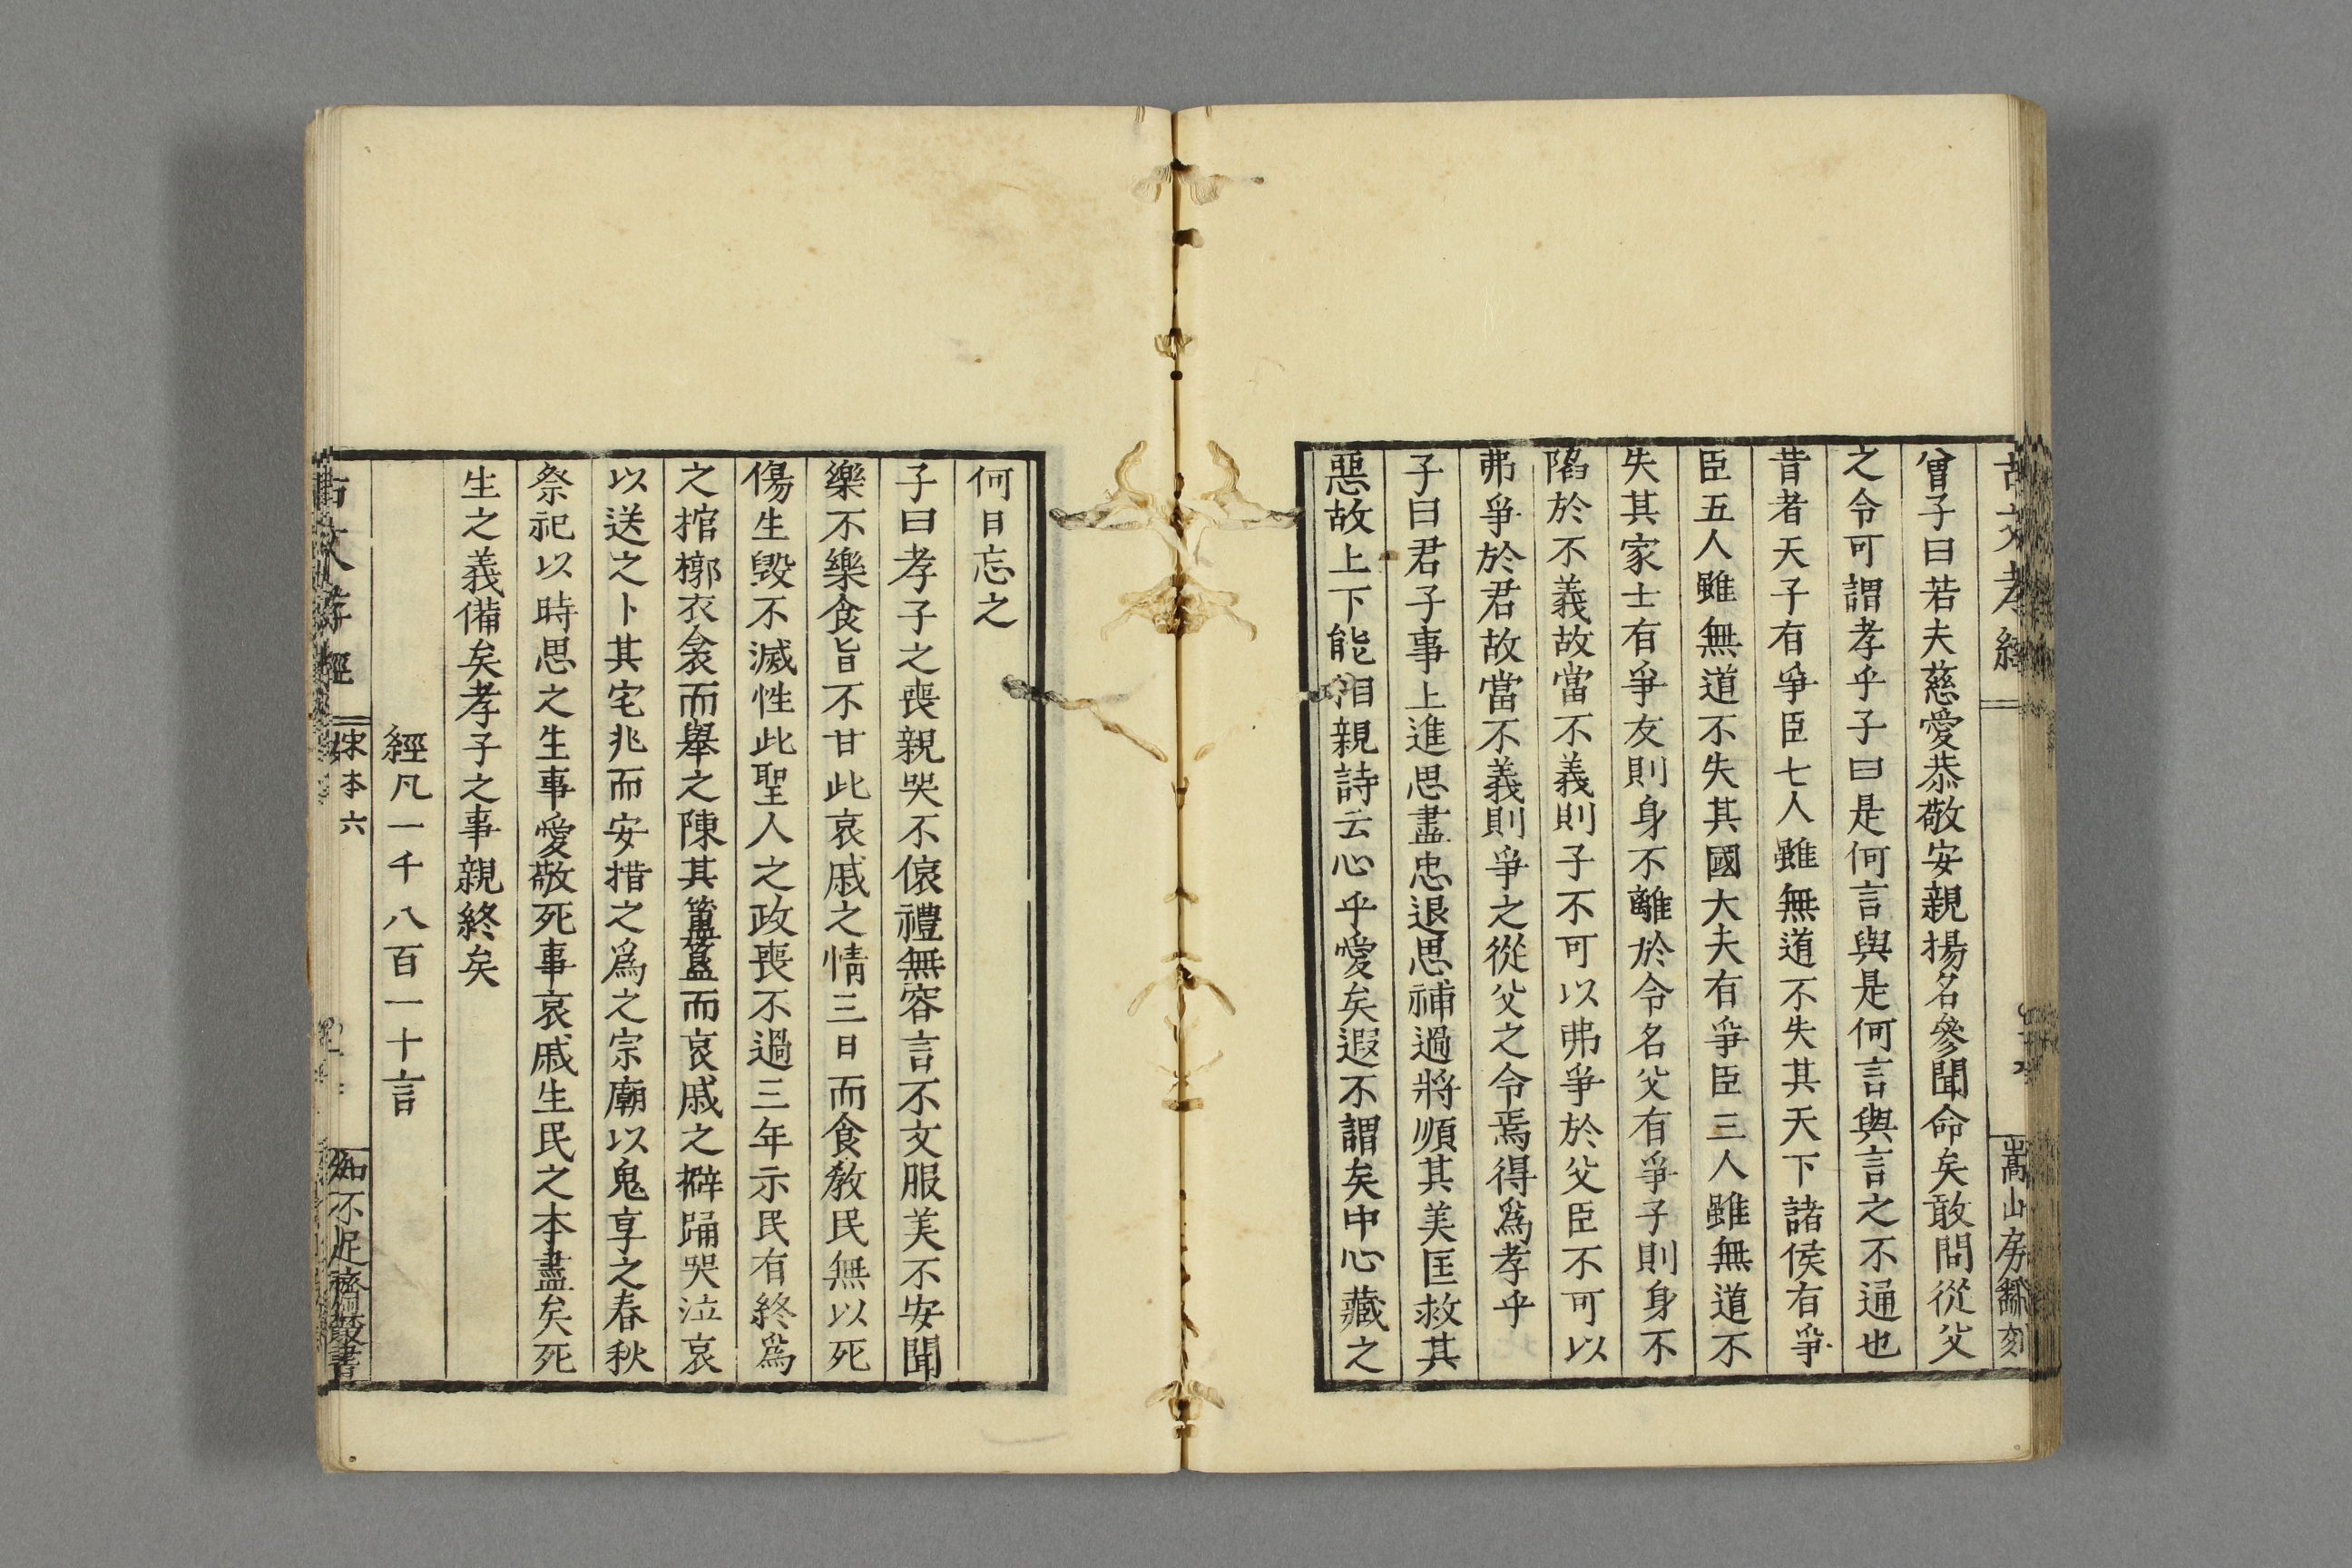 古文孝經
嵩山房翻刻
曾子曰若夫慈愛恭敬安親揚名參聞命矣敢問從父
之令可謂孝乎子曰是何言與是何言與言之不通也
昔者天子有爭臣七人雖無道不失其天下諸侯有爭
臣五人雖無道不失其國大夫有爭臣三人雖無道不
失其家士有爭友則身不離於令名父有爭子則身不
陷於不義故當不義則子不可以弗爭於父臣不可以
弗爭於君故當不義則爭之從父之令焉得爲孝乎
子曰君子事上進思盡忠退思補過將順其美匡救其
惡故上下能相親詩云心乎愛矣遐不謂矣中心藏之
何日忘之
子曰孝子之喪親哭不偯禮無容言不文服美不安聞
樂不樂食旨不甘此哀戚之情三日而食教民無以死
傷生毀不滅性此聖人之政喪不過三年示民有終爲
之棺槨衣衾而舉之陳其簠簋而哀戚之擗踊哭泣哀
以送之卜其宅兆而安措之爲之宗廟以鬼享之春秋
祭祀以時思之生事愛敬死事哀戚生民之本盡矣死
生之義備矣孝子之事親終矣
經凡一千八百一十言
古文孝經
宋本 六
知不足齋叢書